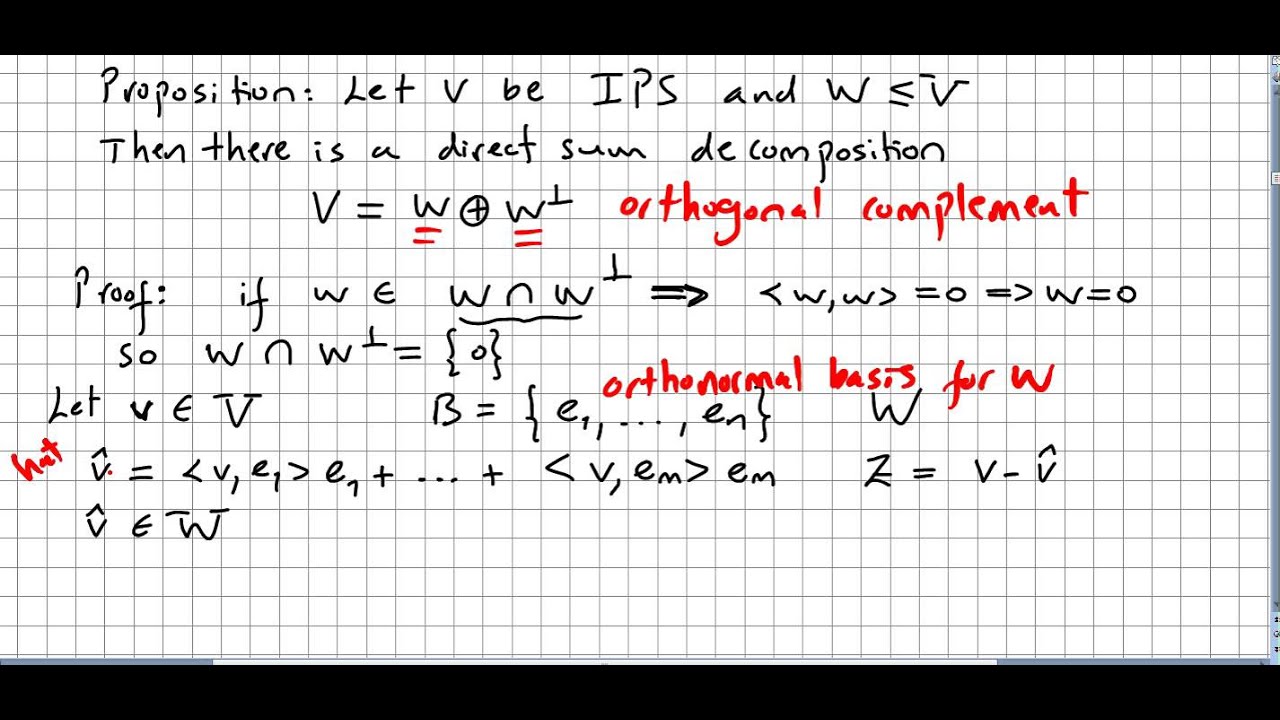 Proposition: Let V be IPS and W ≤ V
Then there is a direct sum decomposition
V = W ⊕ W⊥ orthogonal complement
Proof: if w ∈ W ∩ W⊥ ⇒ <w,w> = 0 => w = 0
so W ∩ W⊥ = {0}
orthonormal basis for W
Let v ∈ V B = {e1, ..., en} W
hat v̂ = <v, e1> e1 + ... + <v, em> em Z = v - v̂
v̂ ∈ W